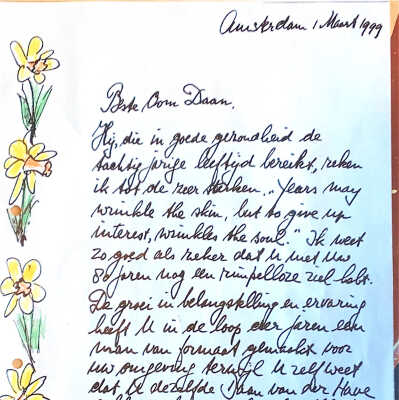 Amsterdam 1 Maart 1999
Beste Oom Daan,
Hij, die in goede gezondheid de
tachtig jarige leeftijd bereikt, reken
ik tot de zeer sterken. „Years may
wrinkle the skin, but to give up
interest, wrinkles the soul." Ik weet
zo goed als zeker dat U met Uw
80 jaren nog een rimpelloze ziel hebt.
De groei in belangstelling en ervaring
heeft U in de loop der jaren een
man van formaat gemaakt voor
uw omgeving terwijl U zelf weet
dat U dezelfde Daan van der Have